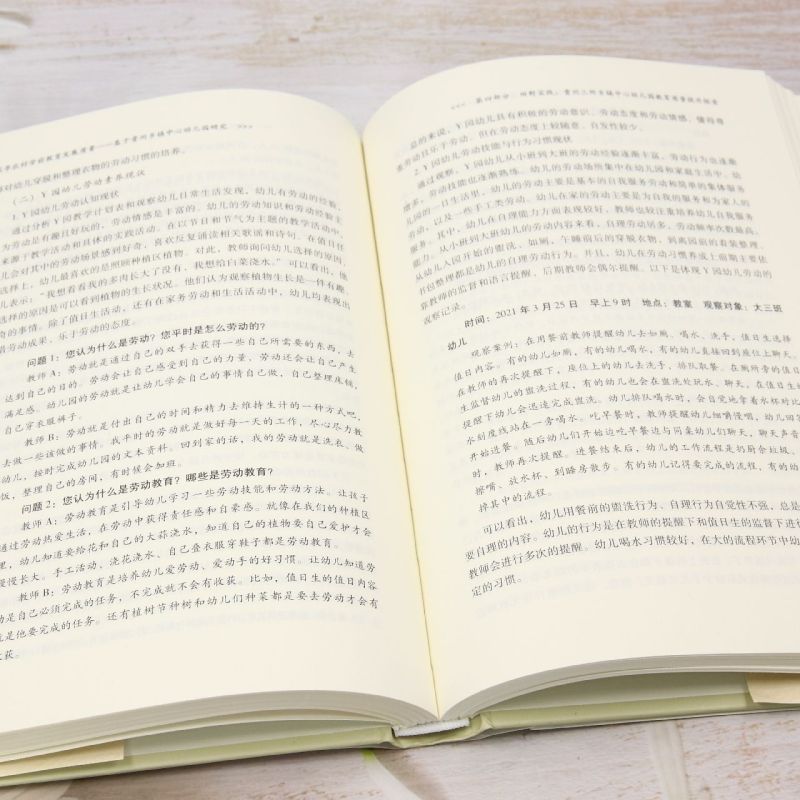 农村学前教育发展质量——基于贵州乡镇中心幼儿园研究 >>>
对幼儿穿脱和整理衣物的劳动习惯的培养。
（二）Y园幼儿劳动素养现状
1.Y园幼儿劳动认知现状
通过分析Y园教学计划表和观察幼儿日常生活发现，幼儿有劳动的经验，
为劳动是有趣且好玩的，劳动情感是丰富的。幼儿的劳动知识和劳动经验主
来源于教学活动和具体的实践活动。在以节日和节气为主题的教学活动中，
儿会对其中的劳动场景感到好奇，喜欢反复诵读相关歌谣和诗句。在值日任
选择上，幼儿最喜欢的是照顾种植区植物。对此，教师询问幼儿选择的原因，
儿表示：“我想看看我的多肉长大了没有，我想给白菜浇水。”可以看出，他
选择的原因是可以看到植物的生长状况。他们认为观察植物生长是一件有趣、
奇的事情。除了值日生活动，还有在家务劳动和生活活动中，幼儿均表现出
惜劳动成果，乐于劳动的态度。
问题1：您认为什么是劳动？您平时是怎么劳动的？
教师A：劳动就是通过自己的双手去获得一些自己所需要的东西，去
达到自己的目的。劳动会让自己感受到自己的力量，劳动还会让自己产生
满足感。幼儿园的劳动就是让幼儿学会自己的事情自己做，自己整理床铺，
自己穿衣服裤子。
教师B：劳动就是付出自己的时间和精力去维持生计的一种方式吧，
去做一些该做的事情。我平时的劳动就是做好每一天的工作，尽心尽力教
幼儿，按时完成幼儿园的文本资料。回到家的话，我的劳动就是洗衣、做
饭，整理自己的房间，有时候会加班。
问题2：您认为什么是劳动教育？哪些是劳动教育？
教师A：劳动教育是引导幼儿学习一些劳动技能和劳动方法。让孩子
通过劳动热爱生活，在劳动中获得责任感和自豪感。就像在我们的种植区
里，幼儿知道要给花和自己的大蒜浇水，知道自己的植物要自己爱护才会
慢慢长大。手工活动、浇花浇水、自己叠衣服穿鞋子都是劳动教育。
教师B：劳动教育是培养幼儿爱劳动、爱动手的好习惯。让幼儿知道劳
动是自己必须完成的任务，不完成就不会有收获。比如，值日生的值日内容
就是他要完成的任务。还有植树节种树和幼儿们种菜都是要去劳动才会有
收获。
<<< 第四部分 田野实践：贵州三所乡镇中心幼儿园教育质量提升探索
总的来说，Y园幼儿具有积极的劳动意识、劳动态度和劳动情感，懂得尊
重劳动且乐于劳动。但在劳动态度上较随意、自发性较少。
2.Y园幼儿劳动技能与行为习惯现状
通过观察，Y园幼儿从小班到大班的劳动经验逐渐丰富，劳动行为也逐渐
增多，劳动技能也逐渐熟练。幼儿的劳动场所集中在幼儿园和家庭生活中。幼
儿园的一日生活里，幼儿的劳动主要是基本的自我服务劳动和简单的集体服务
劳动，以及一些手工类劳动。幼儿在家的劳动主要是为自我的服务和为家人的
服务。其中，幼儿在自理能力方面表现较好，教师也较注重培养幼儿自我服务
能力。从小班到大班幼儿的劳动内容来看，自理劳动居多，劳动频率次数最高。
从幼儿入园开始的盥洗，如厕，午睡前后的穿脱衣物，到离园前的着装整理、
书包整理都是幼儿的自理劳动行为。并且，幼儿在劳动习惯养成上前期主要依
靠教师的监督和语言提醒，后期教师会偶尔提醒。以下是体现Y园幼儿劳动的
观察记录。
时间：2021年3月25日 早上9时 地点：教室 观察对象：大三班
幼儿
观察案例：在用餐前教师提醒幼儿去如厕、喝水、洗手，值日生选择
值日内容。有的幼儿如厕，有的幼儿喝水，有的幼儿直接回到座位上聊天。
在教师的再次提醒下，座位上的幼儿去洗手、排队取餐。在厕所旁的值日
生监督幼儿的盥洗过程，有的幼儿也会在盥洗处玩水、聊天，在值日生的
提醒下幼儿会迅速完成盥洗。幼儿排队喝水时，会自觉地拿着水杯对比
水刻度线站在一旁喝水。吃早餐时，教师提醒幼儿细嚼慢咽，幼儿回答
开始进餐。随后幼儿们开始边吃早餐边与同桌幼儿们聊天，聊天声音
时，教师再次提醒。进餐结束后，幼儿的工作流程是扔厨余垃圾、
擦嘴、放水杯、到睡房散步。有的幼儿记得要完成的流程，有的幼
掉其中的流程。
可以看出，幼儿用餐前的盥洗行为、自理行为自觉性不强，总是
要自理的内容。幼儿的行为是在教师的提醒下和值日生的监督下进行
教师会进行多次的提醒。幼儿喝水习惯较好，在大的流程环节中幼
定的习惯。